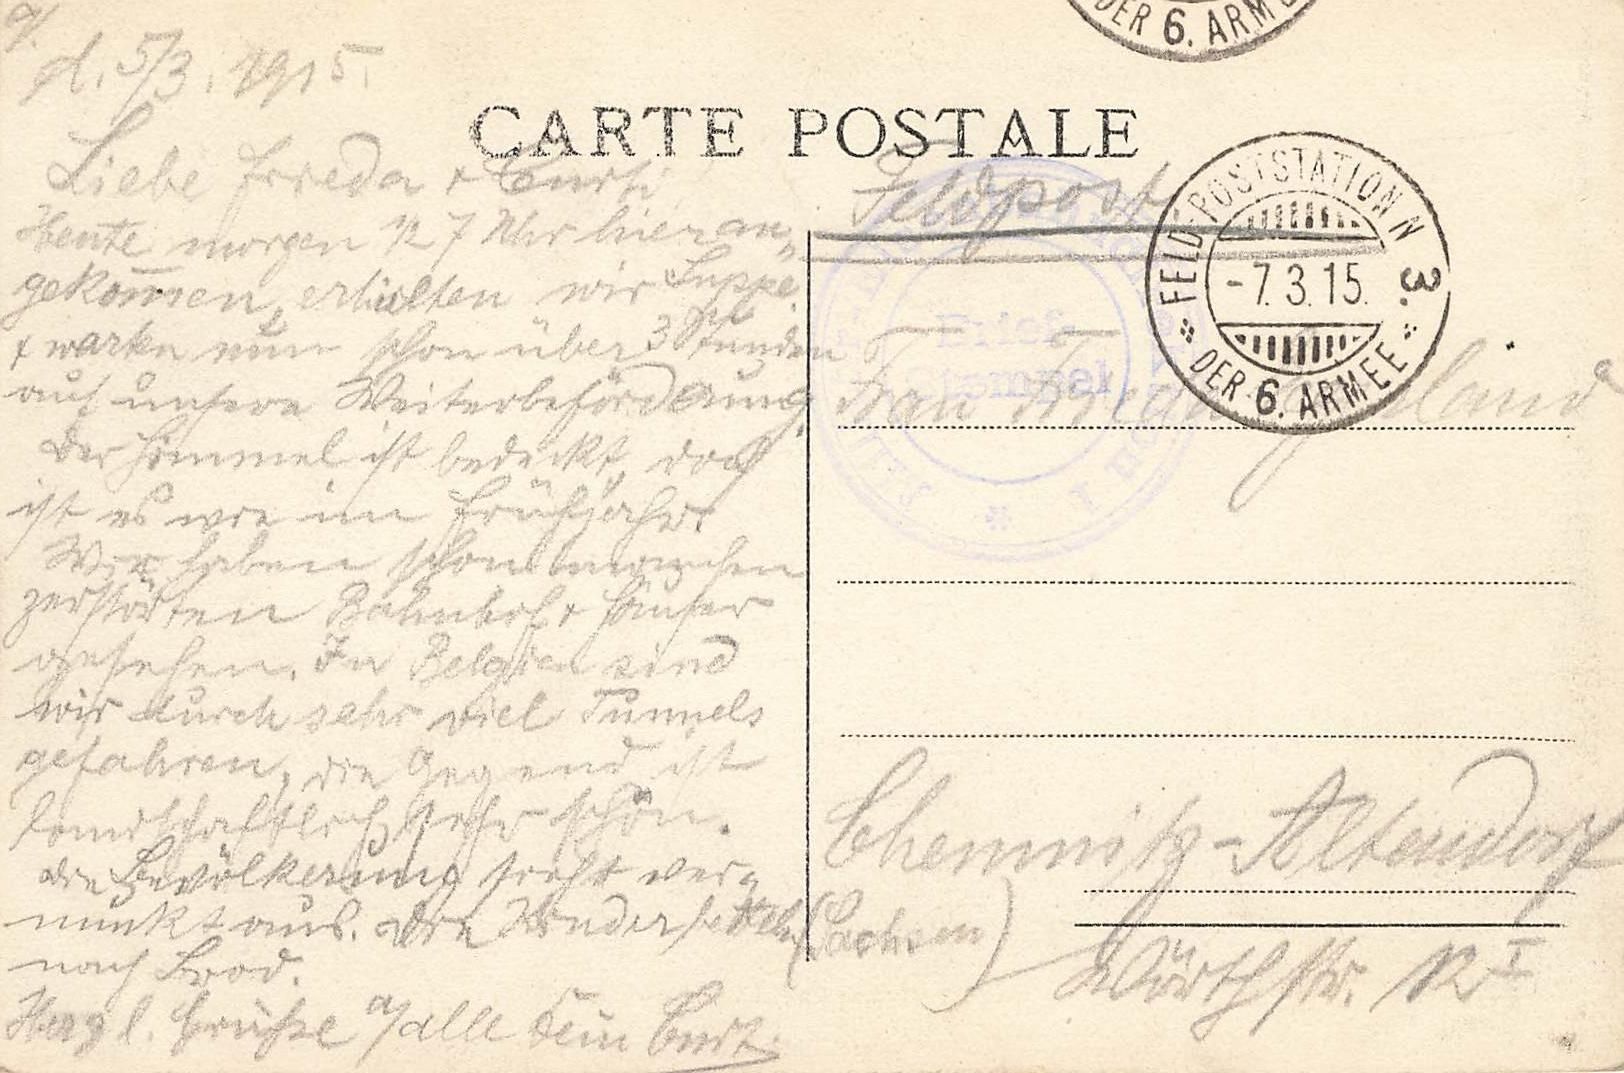 d. 5/3. 1915.
Liebe Frieda + Curti!
Heute morgen 1/2 7 Uhr hier an-
gekommen, erhielten wir Suppe
+ warten nun schon über 3 Stunden
auf unsere Weiterbeförderung.
Der Himmel ist bedeckt, doch
ist es wie im Frühjahr.
Wir haben schon manchen
zerstörten Bahnhof + Häuser
gesehen. In Belgien sind
wir durch sehr viel Tunnels
gefahren, die Gegend ist
landschaftlich sehr schön.
Die Bevölkerung sieht
aus. Die Kinder betteln
nach Brod.
Herzl. Grüße a/ alle Dein Curt.
DER 6. ARMEE
CARTE POSTALE
Feldpost
FELD-POSTSTATION N 3.
-7.3.15.
DER 6. ARMEE
Brief-
stempel
Frau Frieda
Chemnitz-Altendorf
(Sachsen)
Wörthstr. 12 I